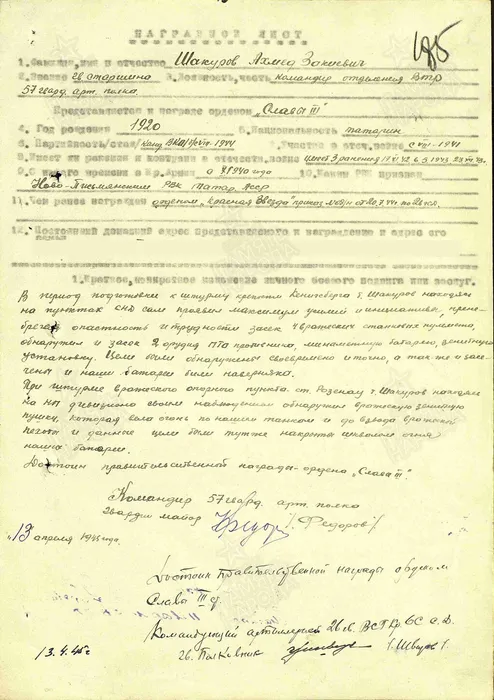 НАГРАДНОЙ ЛИСТ
185
1. Фамилия, имя и отчество Шакуров Ахмед Закиевич
2. Звание гв старшина 3. Должность, часть командир отделения ВТР
57 гвард. арт. полка.
Представляется к награде орденом „Слава III"
4. Год рождения 1920 5. Национальность татарин
6. Партийность /стаж/ канд ВКП/б/ 1944 7. Участие в отеч. войне с VIII-1941
8. Имеет ли ранения и контузии в отечеств. войне имеет 3 ранения
9. С какого времени в Кр. Армии с 1940 года 10. Каким РВК призван
Ново-Письмянским РВК Татар. АССР
11. Чем ранее награжден орденом „Красная Звезда" приказ
12. Постоянный домашний адрес представляемого к награждению и адрес его
1. Краткое, конкретное изложение личного боевого подвига или заслуг.
В период подготовки к штурму крепости Кенигсберга т. Шакуров находясь
на пунктах СНД сам проявил максимум усилий и инициативы, прене-
брегая опасностью и трудности засек 4 вражеских станковых пулемета,
обнаружил и засек 2 орудия ПТО противника, минометную батарею, зенитную
установку. Цели были обнаружены своевременно и точно, а так же и засе-
чены и наши батареи били наверняка.
При штурме вражеского опорного пункта ст. Розенау т. Шакуров находясь
на НП дивизиона своим наблюдением обнаружил вражескую зенитную
пушку, которая вела огонь по нашим танкам и до взвода вражеской
пехоты и данные цели были тут же накрыты шквалом огня
наших батарей.
Достоин правительственной награда-ордена „Слава III".
Командир 57 гвард. арт. полка
гвардии майор /Федоров/
„13 апреля 1945 года.
Достоин Правительственной награды орденом
Слава III ст.
Командующий артиллерией 26 гв. ВСГКр ОС с.д.
гв. Полковник /Швырев/
13.4.45 г